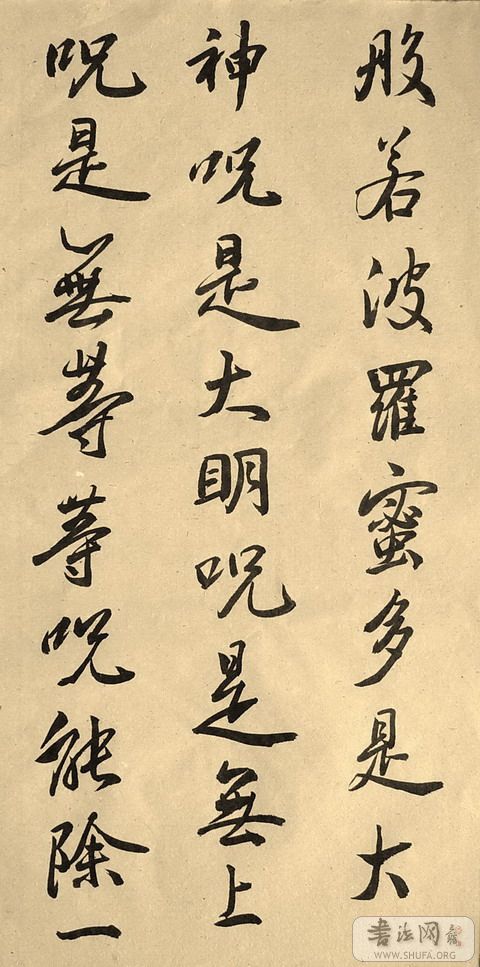 般若波羅蜜多是大
神呪是大明呪是無上
呪是無等等呪能除一
書法网
WWW.SHUFA.ORG